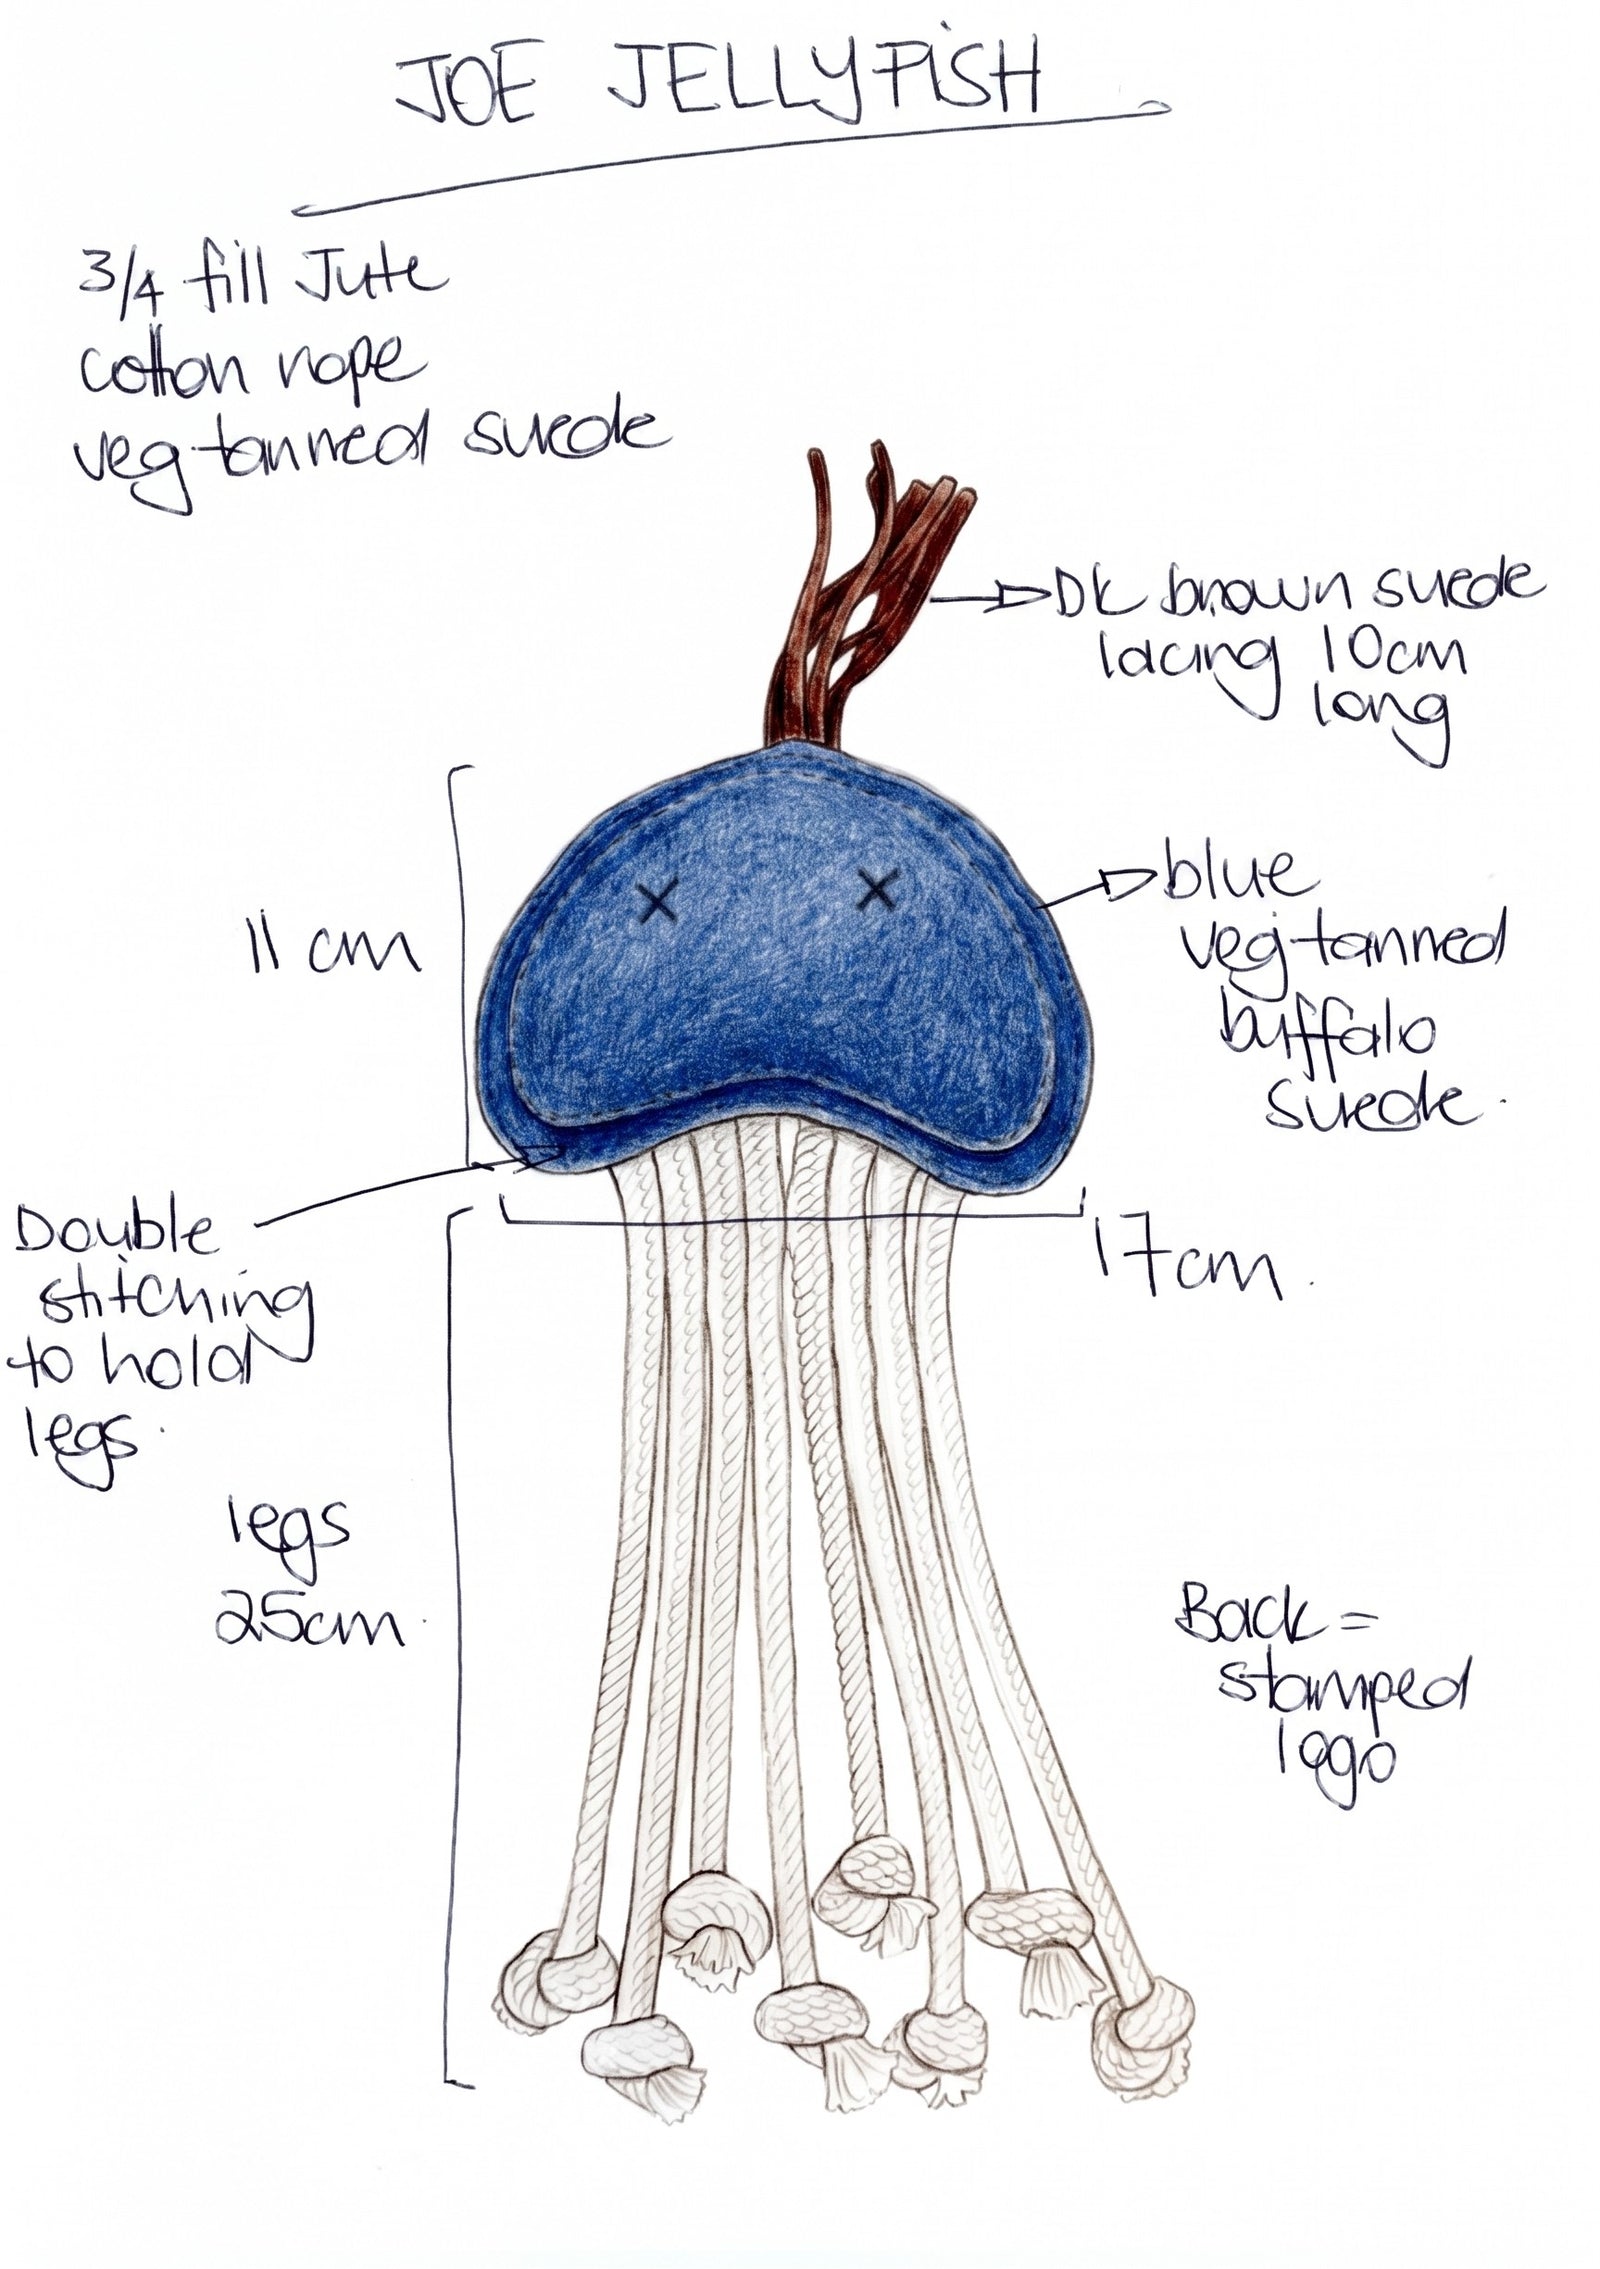 JOE JELLYFISH
3/4 fill Jute
cotton rope
veg-tanned suede
DK brown suede
lacing 10cm
long
11 cm
blue
veg-tanned
buffalo
suede.
Double
stitching
to hold
legs.
17cm.
legs
25cm.
Back =
stamped
logo